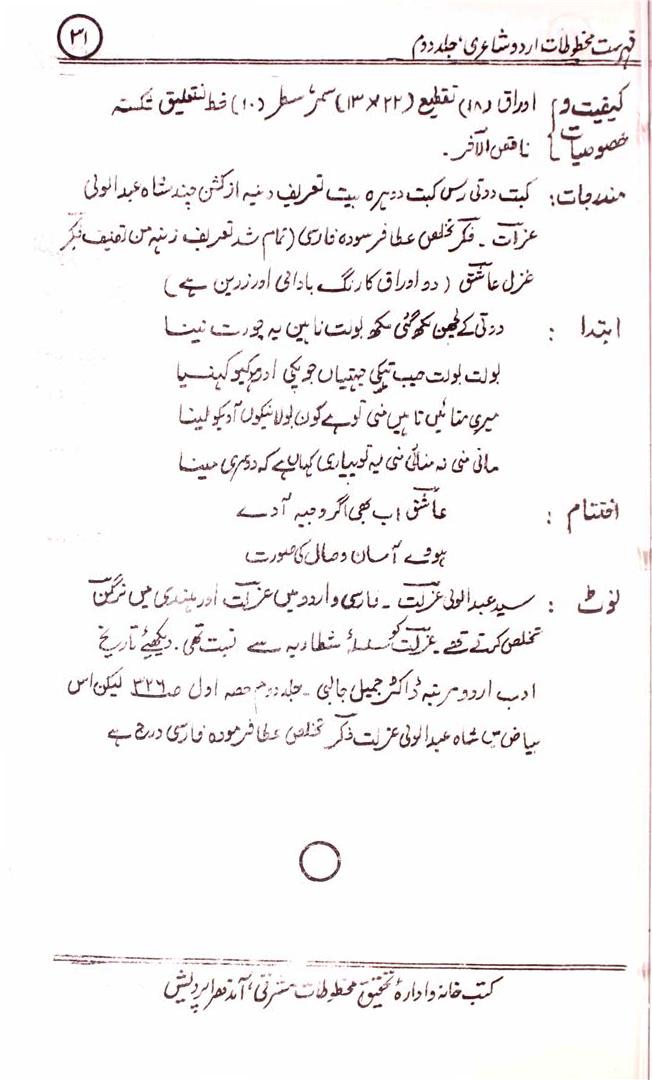 فہرست مخطوطات اردو شاعری، جلد دوم ۳۱
کیفیت و اوراق (۱۸) تقطیع (۲۲×۱۳) سمر، سطر (۱۰) خط نستعلیق شکستہ
خصوصیات ناقص الآخر۔
مندرجات: کبت دوتی رس کبت دوہرہ بیت تعریف دنیہ از کشن چند شاہ عبدالولی
عزلت۔ فکر تخلص عطا فرمودہ فارسی (تمام شد تعریف زینہ من تصنیف فکر
غزل عاشق (دو اوراق کا رنگ بادامی اور زرین ہے)
ابتدا : دوتی کے لچھن مکھ گئی مکھ بولت ناہین یہ چورت نینا
بولت بولت جیب تہکی چہتیاں جو پکی اور کیو کہنیا
میری منائیں ناہیں منی توہے کون بولا نیکوں آدیکو لینا
مانی منی نہ منائی منی یہ تو پیاری کہاں ہے کہ دوسری مینا
اختتام : عاشق اب بھی اگر وجیہ آدے
ہووے آسان وصال کی صورت
نوٹ : سید عبدالولی عزلت۔ فارسی و اردو میں عزلت اور ہندی میں نرگن
تخلص کرتے تھے۔ عزلت کو سلسلۂ شطاریہ سے نسبت تھی۔ دیکھئے تاریخ
ادب اردو مرتبہ ڈاکٹر جمیل جالبی۔ جلد دوم حصہ اول صـ ۳۲۶ لیکن اس
بیاض میں شاہ عبدالولی عزلت ذکر تخلص عطا فرمودہ فارسی درج ہے
کتب خانہ و ادارۂ تحقیق مخطوطات مشرقی، آندھرا پردیش